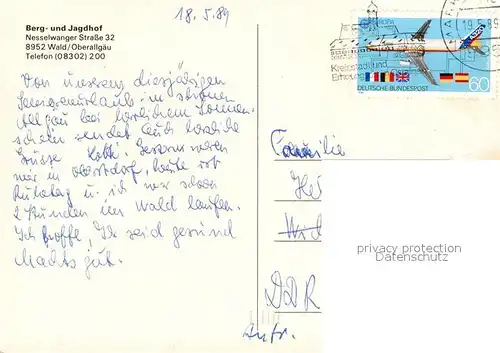 18.5.89
Berg- und Jagdhof
Nesselwanger Straße 32
8952 Wald/Oberallgäu
Telefon (08302) 200
Von unserem diesjährigen
im schönen
Allgäu bei herrlichem Sonnen-
schein sendet Euch herzliche
Grüsse Gestern waren
wir in Oberstdorf, heute ist
Ruhetag u. ich war schon
2 Stunden im Wald laufen.
Ich hoffe, Ihr seid gesund
Machts gut.
EUROPA
19.5.89
Kreisstadt und
Erholung
60
DEUTSCHE BUNDESPOST
Familie
DDR
privacy protection
Datenschutz